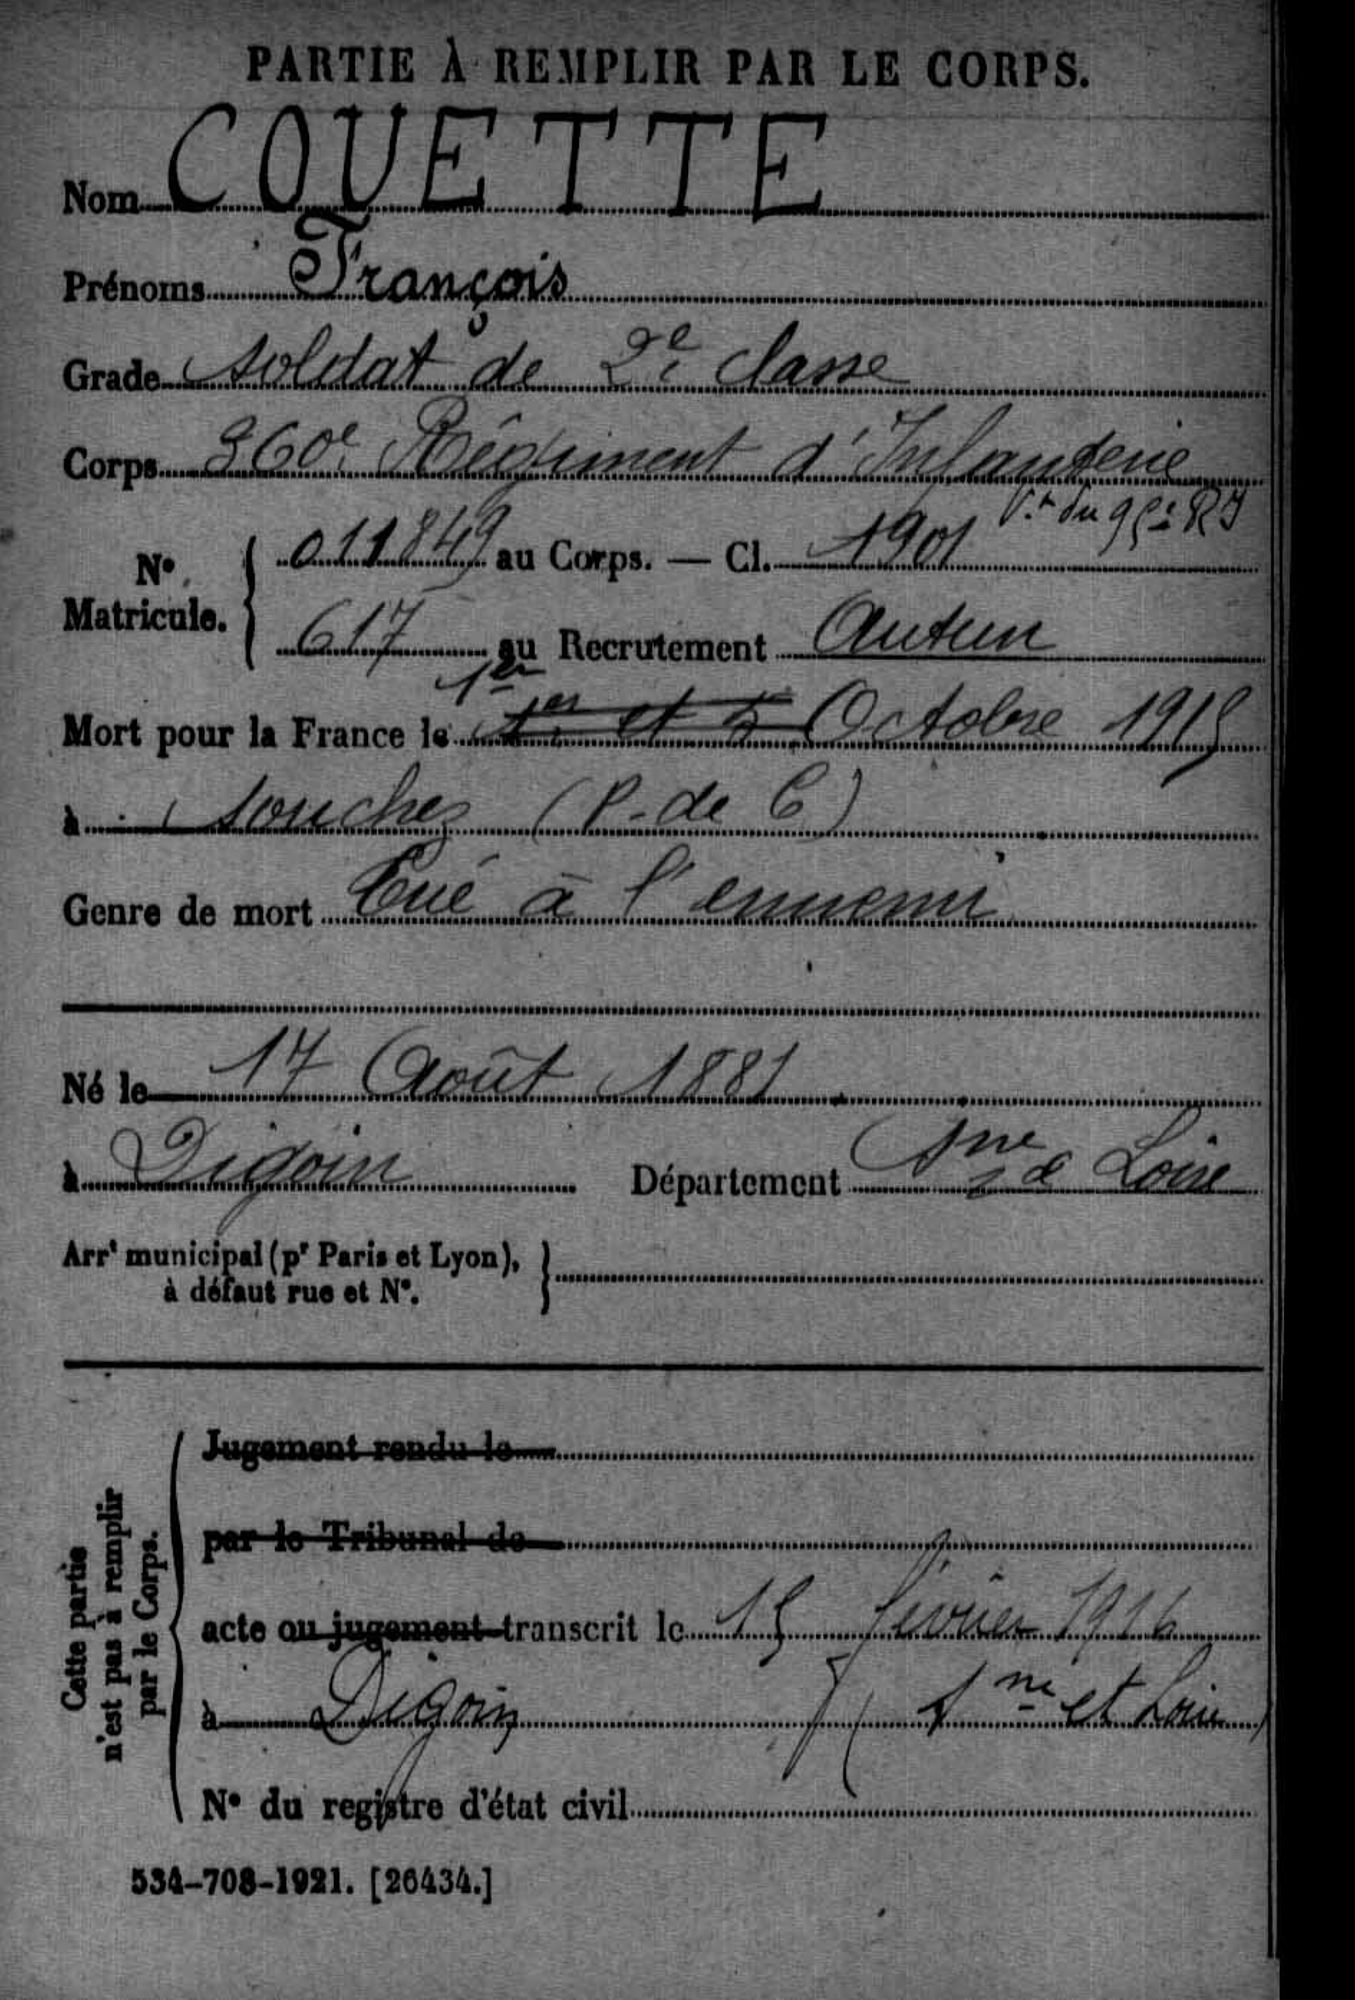 PARTIE À REMPLIR PAR LE CORPS.
Nom COUETTE
Prénoms François
Grade soldat de 2e classe
Corps 360e Régiment d'Infanterie
Vt du 95e RI
No Matricule. 011849 au Corps. — Cl. 1901
617 au Recrutement Autun
1er
Mort pour la France le 1er et 5 Octobre 1915
à Souchez (P. de C)
Genre de mort Tué à l'ennemi
Né le 17 Août 1881
à Digoin Département Sne & Loire
Arrt municipal (pr Paris et Lyon),
à défaut rue et No.
Cette partie
n'est pas à remplir
par le Corps.
Jugement rendu le
par le Tribunal de
acte ou jugement transcrit le 15 février 1916
à Digoin (Sne et Loire)
No du registre d'état civil
534-708-1921. [26434.]